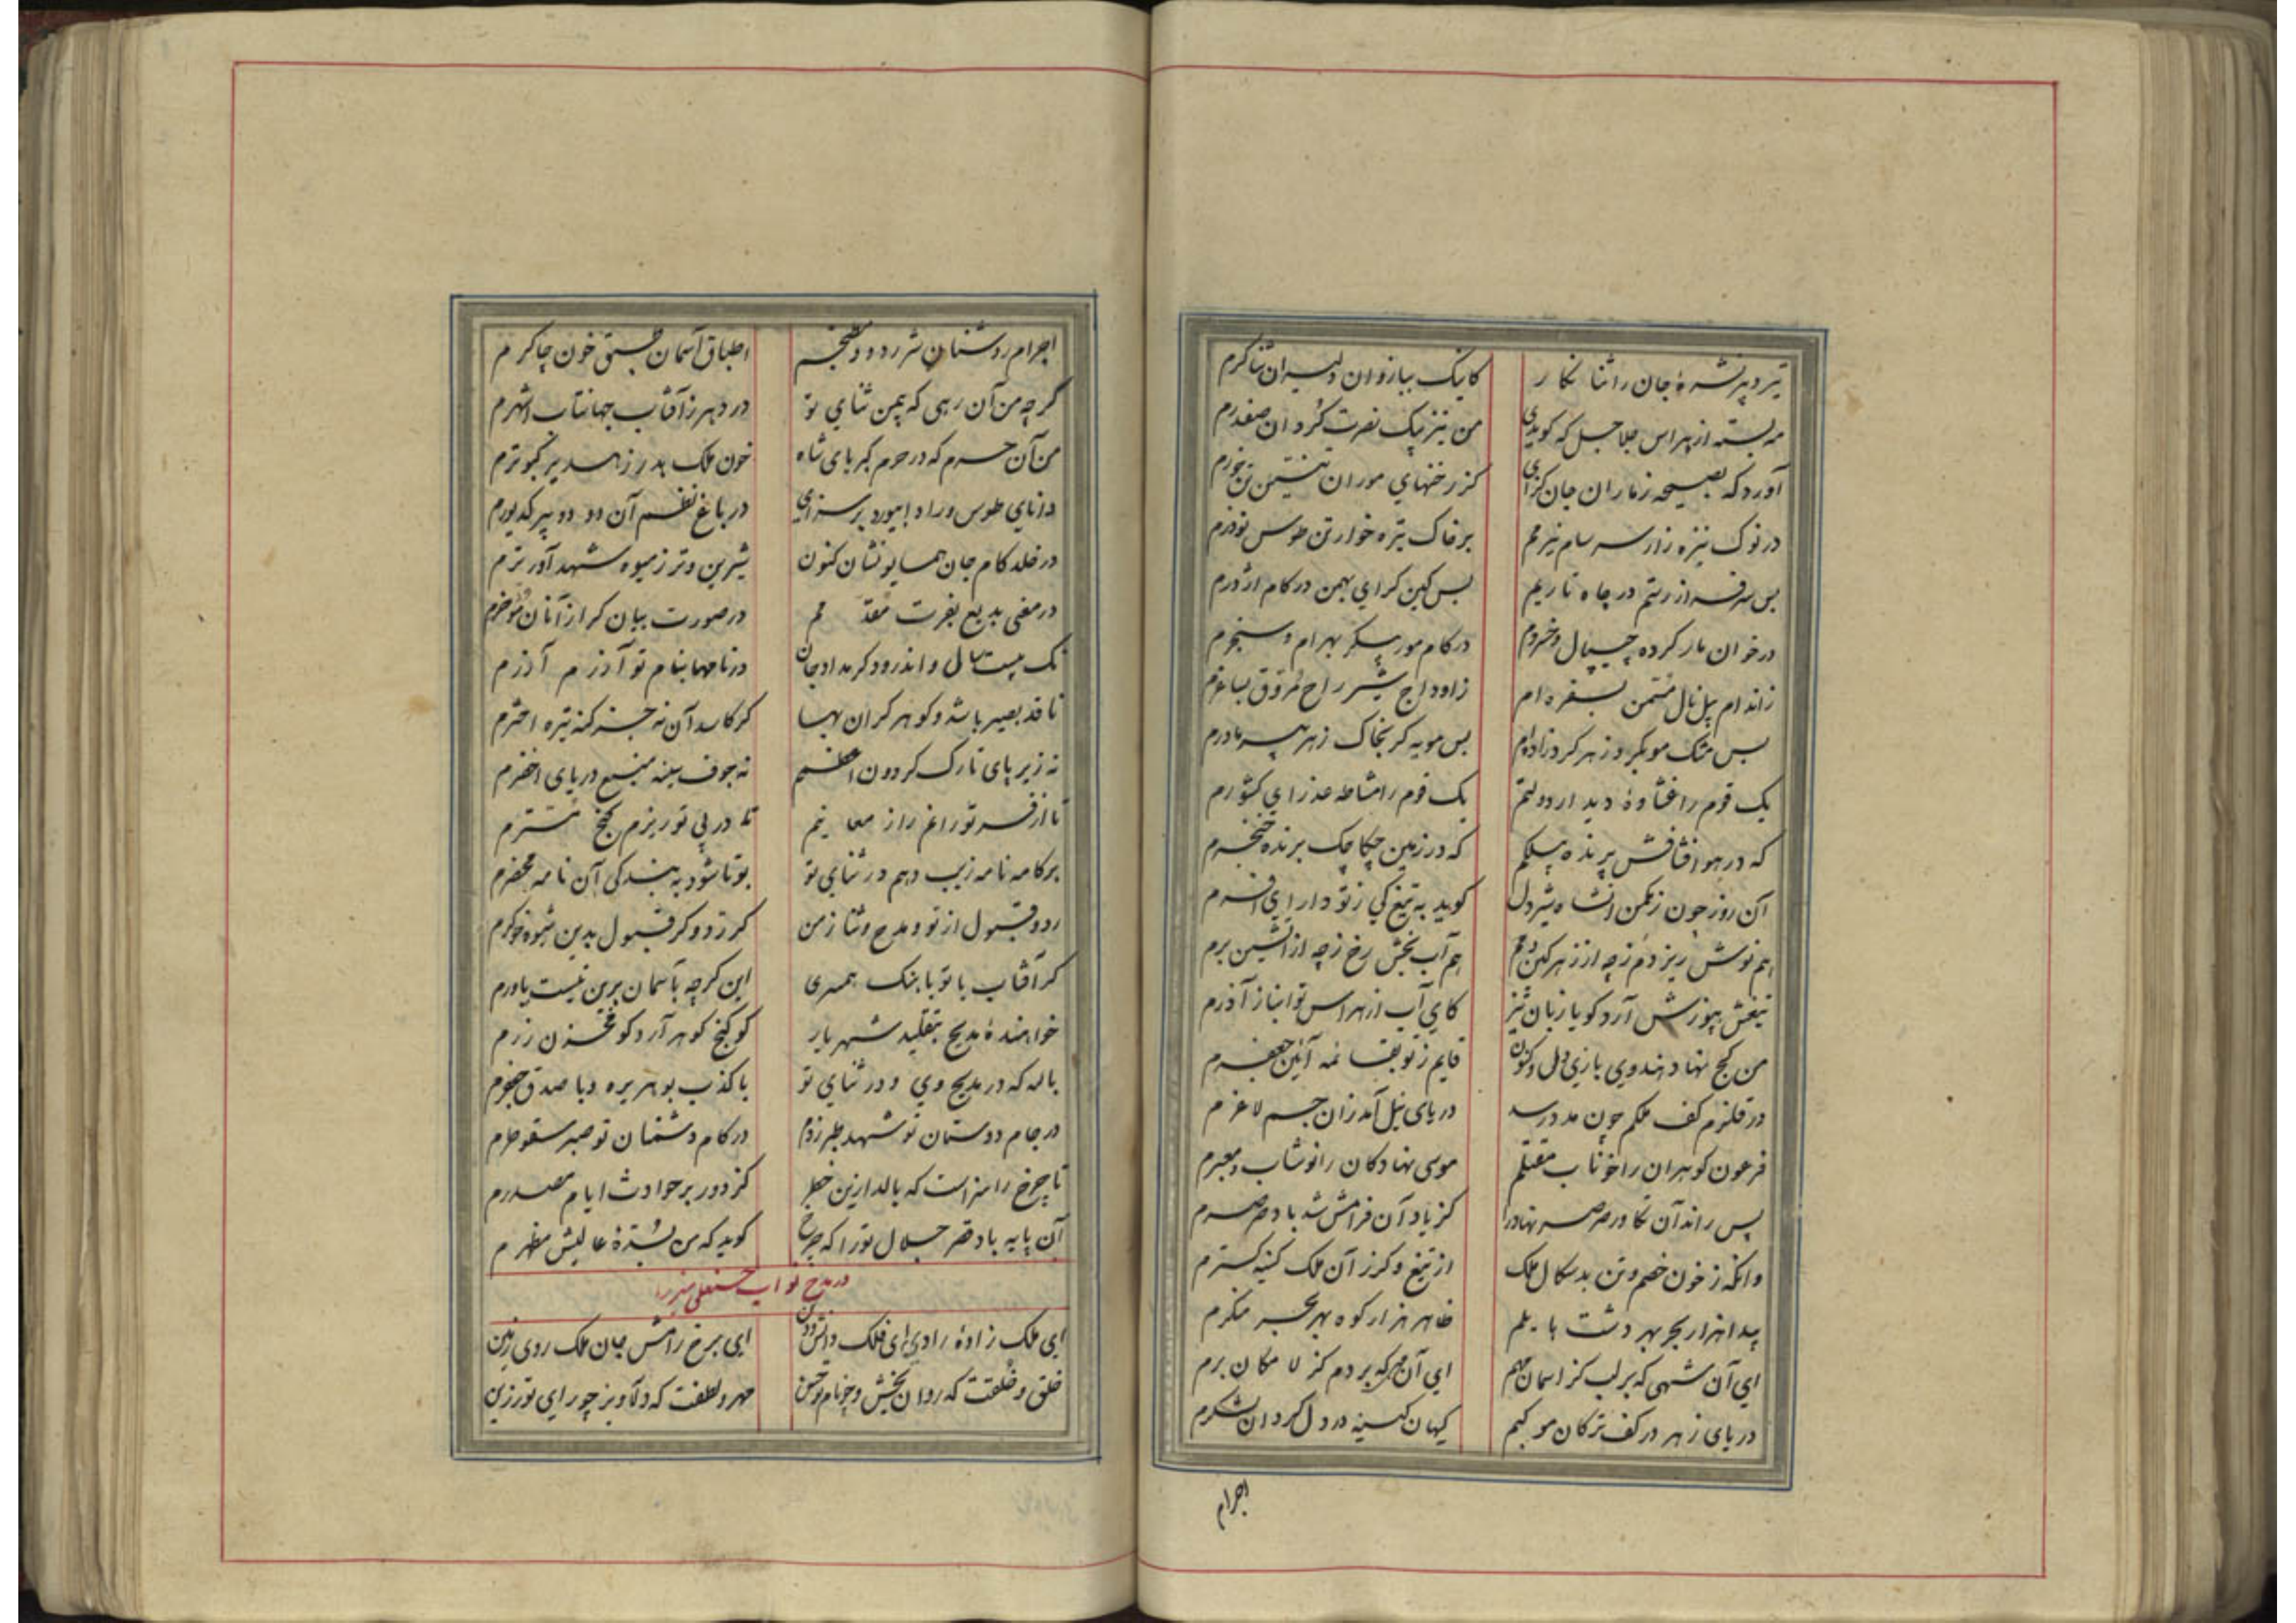 تیر دپیر نشرهٔ جان را ثنا نگار کاینک ببازوان دلیران شناگرم
مه بسته از هراس جلاجل که گویدی من نیز پیک نصرت گردان صفدرم
آورد که بصیحه ز ماران جان گزای کز رخنهای موران تنین تن خورم
در نوک نیزه زار سر سام نیرمم بر خاک تیره خوار تن طوس نوذرم
بس سرفراز رستم در چاه تاریم بس کین گرای بهمن در کام اژدرم
در خوان مار کرده چیپال و خسروم در کام مور پیکر بهرام و سنجرم
ز اندام پیل نال مثمن بسفره ام ز اوداج شیر راح مروق بساغرم
بس مشک موی کرد ز هر کرد زاده ام بس مویه گر بخاک ز هر پیر مادرم
یک قوم را غشاوهٔ دیدار دولتم یک قوم را مشاطه عذرای کشورم
که در هوا فشافش پرنده پیلکم که در زمین چکاچک برنده خنجرم
آن روز چون ز مکمن آنشاه شیر دل گوید به تیغ کی ز تو دارای افسرم
هم نوش ریز دم ز چه از زهر کین دمم هم آب بخش رخ ز چه از آتشین برم
تیغش بپوزش آرد گویا زبان تیز کای آب از هراس تو انباز آذرم
من کج نهاد هندوی بازی دل و کنون قایم ز تو بقائمه آئین جعفرم
در قلزم کف ملکم چون مدد رسد دریای نیل آمد زان جسم لاغرم
فرعون گوهران را خوناب مقتلم موسی نهادگان را نوشاب و معبرم
پس راند آن تکاور صرصر نهاد را کز یاد آن فرامش شد باد صرصرم
وانگه ز خون خصم و تن بدسگال ملک از تیغ و گرز آن ملک کینه گسترم
پیدا هزار بحر بهر دشت یا یلم ظاهر هزار کوه بهر بحر منکرم
ای آن شهی که بر لب کز آسمان مهم ای آن مهی که بردم کز لا مکان برم
دریای زهر در کف ترکان موکبم کیهان کینه در دل گردان لشکرم
اجرام
اجرام روشنان شرر دود مطبخم اطباق آسمان خون چاکرم
گرچه من آن رهی که بیمن ثنای تو در دهر ز آفتاب جهانتاب اشهرم
من آن حرم که در حرم کبریای شاه خون ملک هدر ز هدیر کبوترم
دانای طوس و راد ابیورد بر سزای در باغ نظم آن دو دو پیر کدیورم
در خلد کام جان همایونشان کنون شیرین و تر ز میوه شهد آور ترم
در معنی بدیع بفرت مقدمم در صورت بیان گر از آنان مؤخرم
نک بیست سال و اند رود کز مداد جان در نامها بنام تو آذرم آذرم
ناقد بصیر باشد و گوهر گران بها گر کاسد آن نه جز گنه تیره اخترم
نه زیر پای تارک گردون اعظمم نه جوف سینه منبع دریای اخضرم
تا از فر تو راغ راز معاینم تا در پی تو ریزم گنج مسترم
بر کامه نامه زیب دهم در ثنای تو بو تا شود به بندگی آن نامه محضرم
رد و قبول از تو و مدح و ثنا ز من گر رد و گر قبول بدین شیوه خوگرم
گر آفتاب با تو با بنک همسری این گرچه بآسمان برین نیست باورم
خواهندهٔ مدیح بتقلید شهریار کو گنج گوهر آرد کو مخزن زرم
بالله که در مدیح وی و در ثنای تو با کذب بوهریره و با صدق جعفرم
در جام دوستان تو شهد طبرزدم در کام دشمنان تو صبر سقوطرم
تا چرخ را سزاست که بالد ازین خطر کز دور بر حوادث ایام مصدرم
آن پایه باد قصر جلال تو را که چرخ گوید که من بسدهٔ عالیش مظهرم
در مدح نواب حسنعلی میرزا
ای ملک زادهٔ راد ای فلک دانش و دین ای برخ رامش جان ملک روی زمین
خلق و خلقت که روان بخش و چو نام تو حسن مهر و لطفت که دلاویز چو رای تو رزین